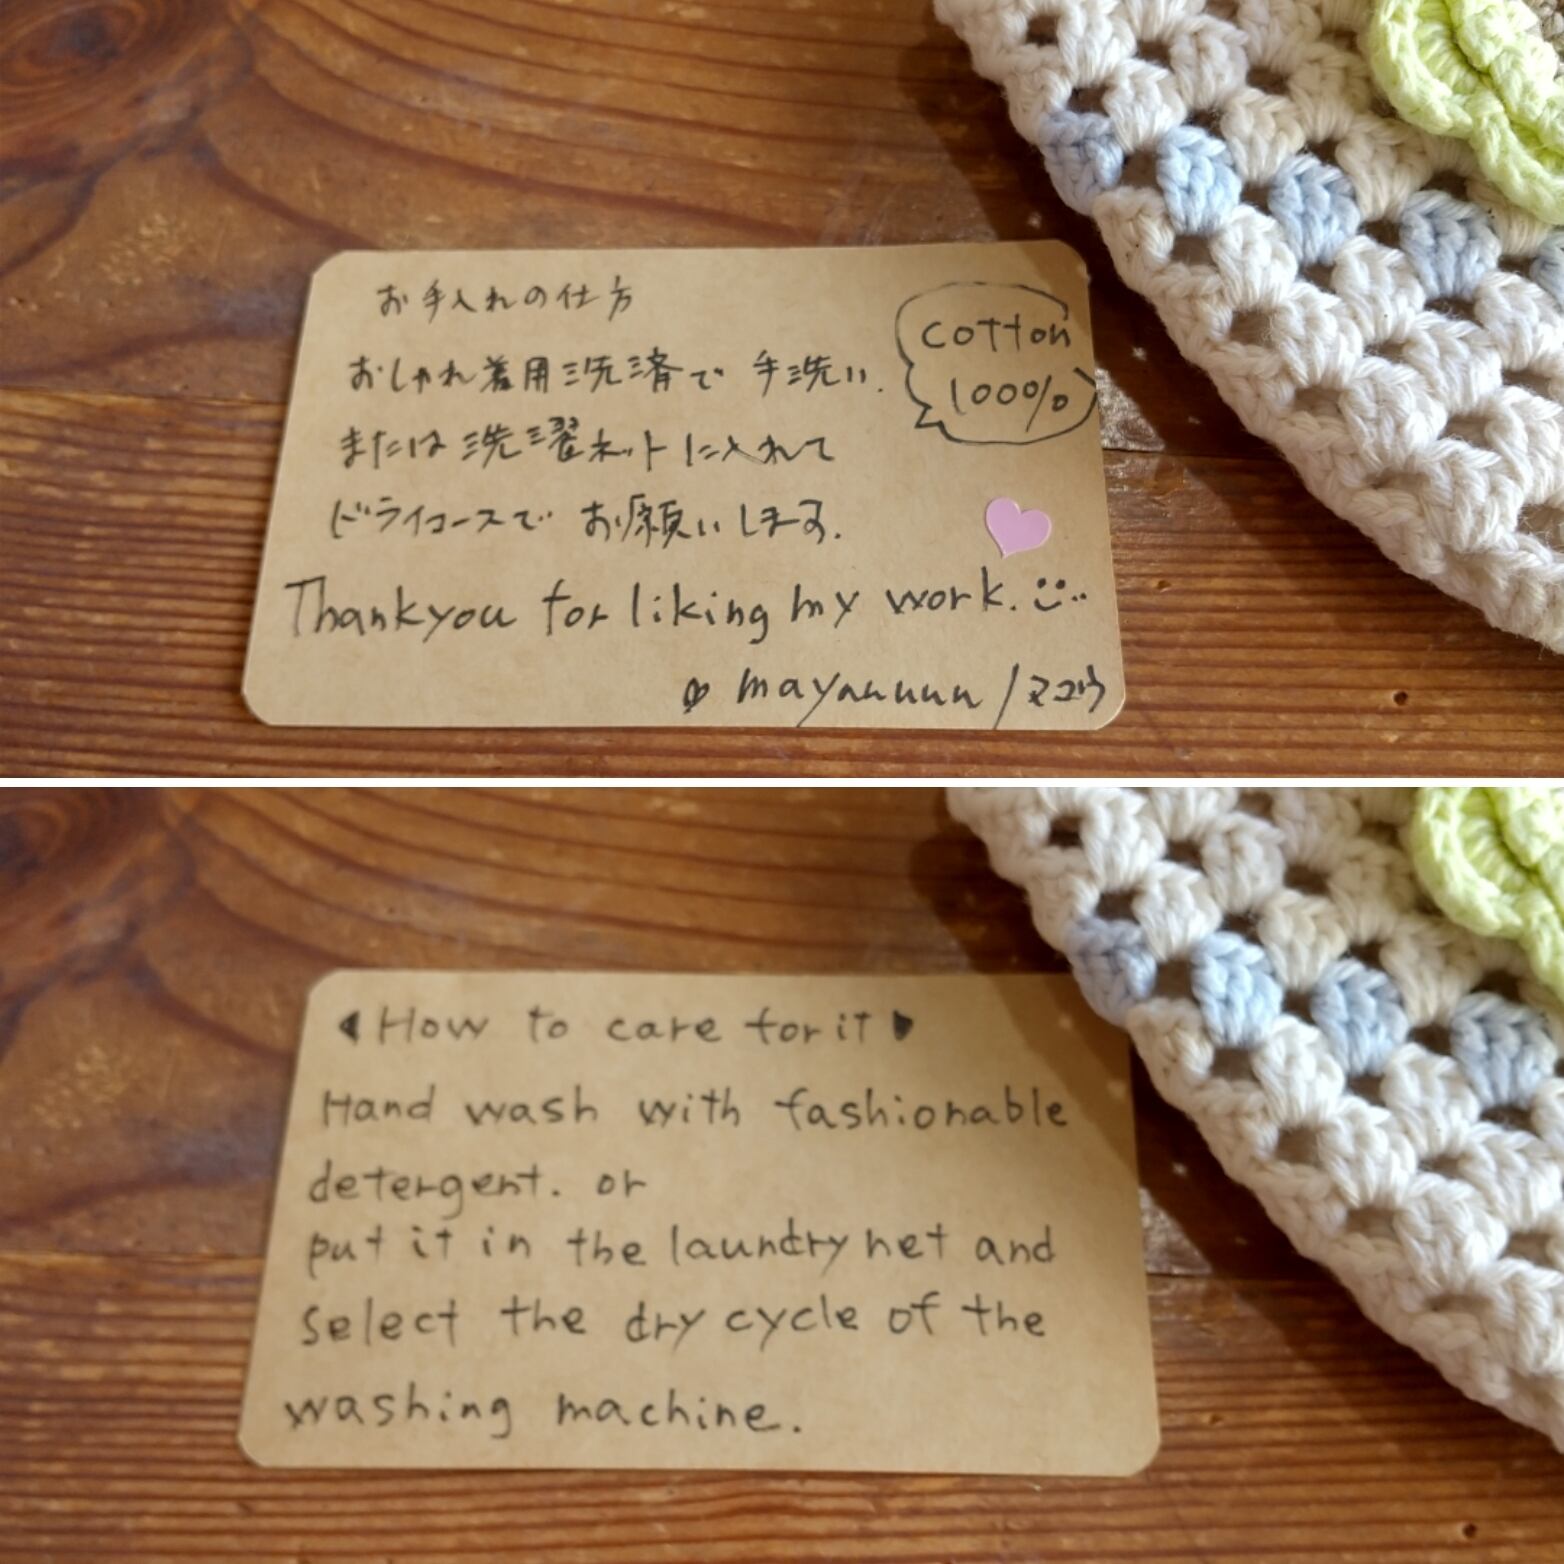 お手入れの仕方
おしゃれ着用洗済で手洗い.
または洗濯ネットに入れて
ドライコースでお願いします.
cotton
100%
Thankyou for liking my work.
mayuuuuu /マユウ
How to care for it
Hand wash with fashionable
detergent. or
put it in the laundry net and
Select the dry cycle of the
washing machine.